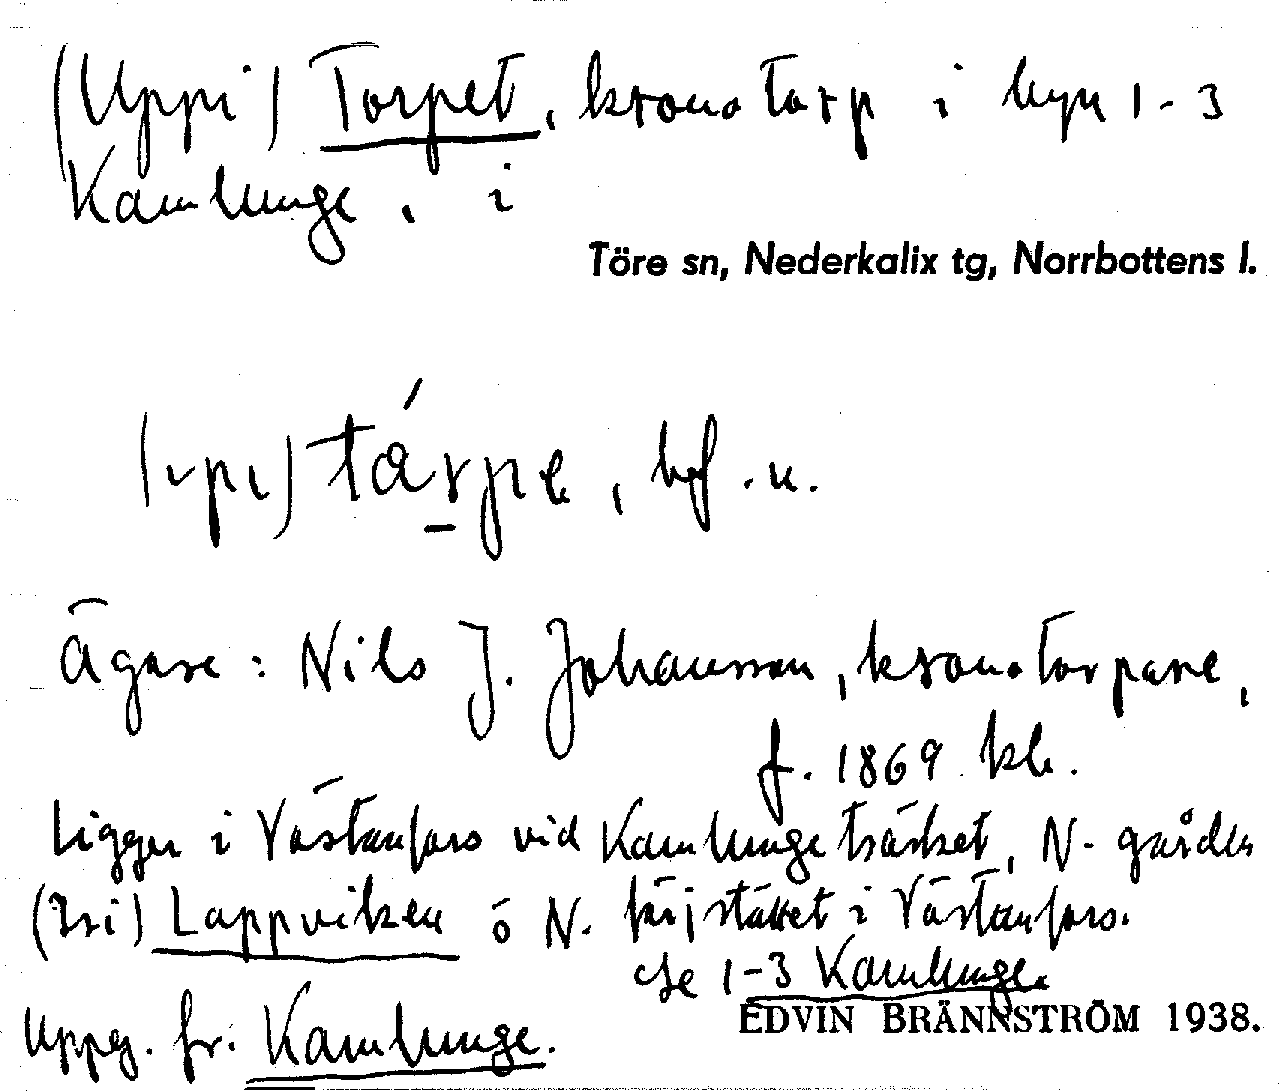 (Uppi) Torpet, kronotorp i byn 1-3
Kamlunge, i
Töre sn, Nederkalix tg, Norrbottens l.
tárpe, bf. n.
Ägare: Nils J. Johansson, kronotorpare,
f. 1869 kl.
Ligger i Västanfors vid Kamlungeträsket, N- gården
Lappviken ö N. i Västanfors.
Se 1-3 Kamlunge.
Uppg. fr. Kamlunge.
EDVIN BRÄNNSTRÖM 1938.